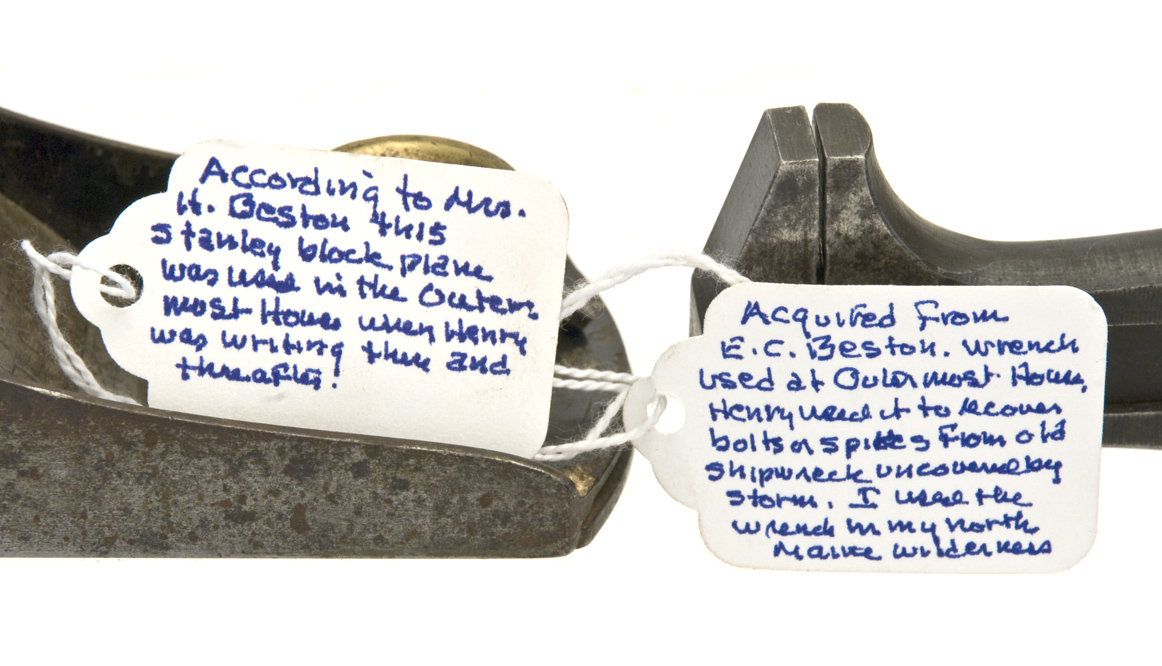 According to Mrs.
H. Beston this
stanley block plane
was used in the Outer
most House when Henry
was writing there and
thereafter!
Acquired From
E.C. Beston. wrench
used at Outermost House,
Henry used it to recover
bolts or spikes from old
shipwreck uncovered by
storm. I used the
wrench in my north
Maine wilderness